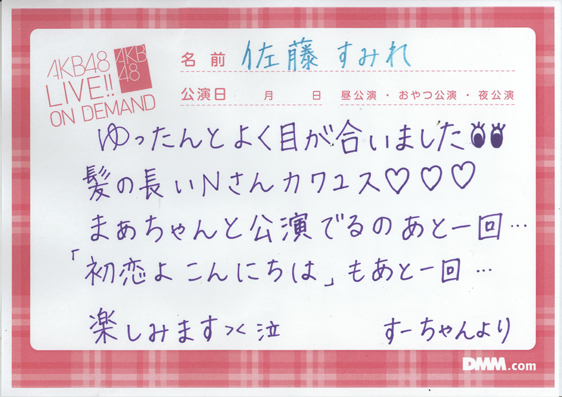 AKB48
LIVE!!
ON DEMAND
AKB
48
名前 佐藤すみれ
公演日 月 日 昼公演・おやつ公演・夜公演
ゆったんとよく目が合いました👀
髪の長いNさんカワユス♡♡♡
まぁちゃんと公演でるのあと一回…
「初恋よこんにちは」もあと一回…
楽しみますっく泣 すーちゃんより
DMM.com